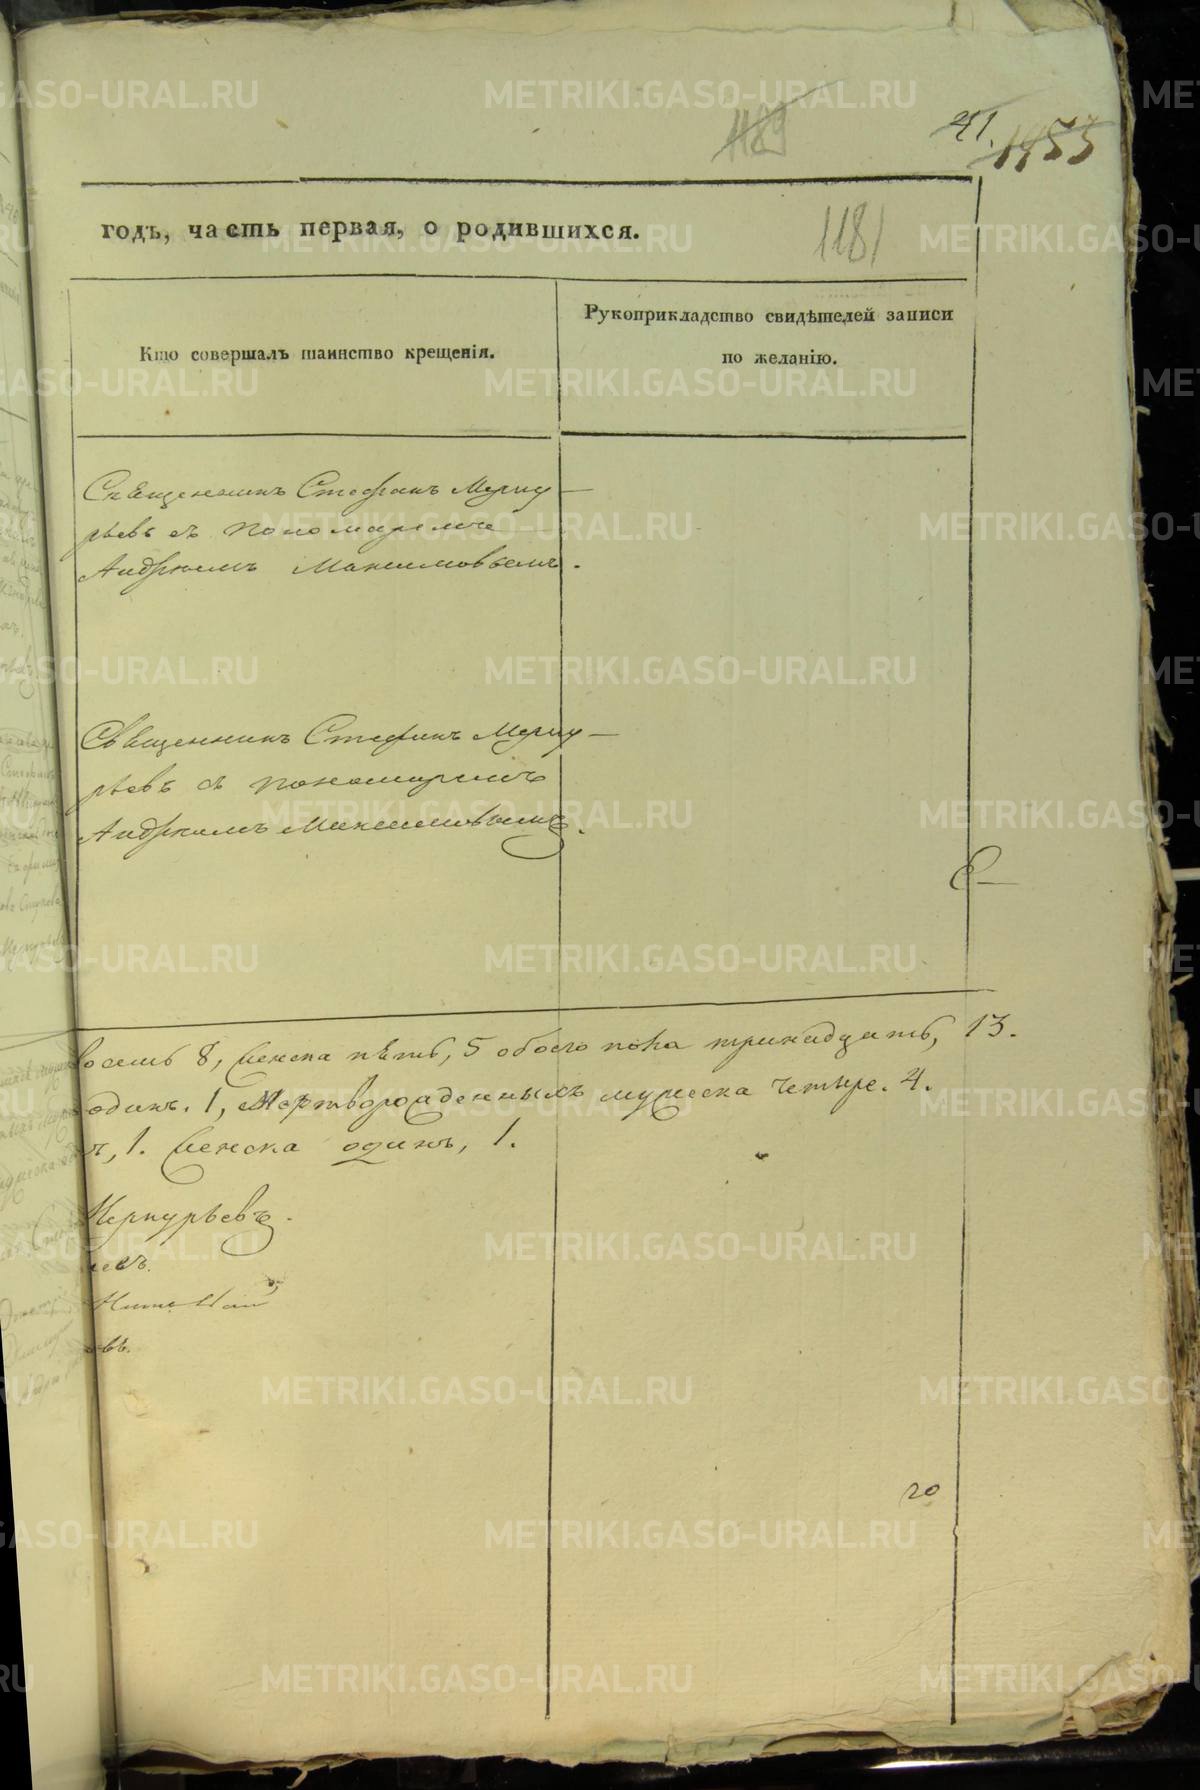 1189
41.
1453
годъ, часть первая, о родившихся.
1181
Кто совершалъ таинство крещенія.
Рукоприкладство свидѣтелей записи
по желанію.
Священникъ Стефанъ Мерку
рьевъ съ пономаремъ
Андреемъ Максимовымъ.
Священникъ Стефанъ Мерку
рьевъ съ пономаремъ
Андреемъ Максимовымъ.
восемь 8, женска пять, 5 обоего пола тринадцать, 13.
одинъ. 1, Мертворожденныхъ мужеска четыре. 4.
ъ, 1. женска одинъ, 1.
Меркурьевъ.
евъ.
овъ.
20
METRIKI.GASO-URAL.RU